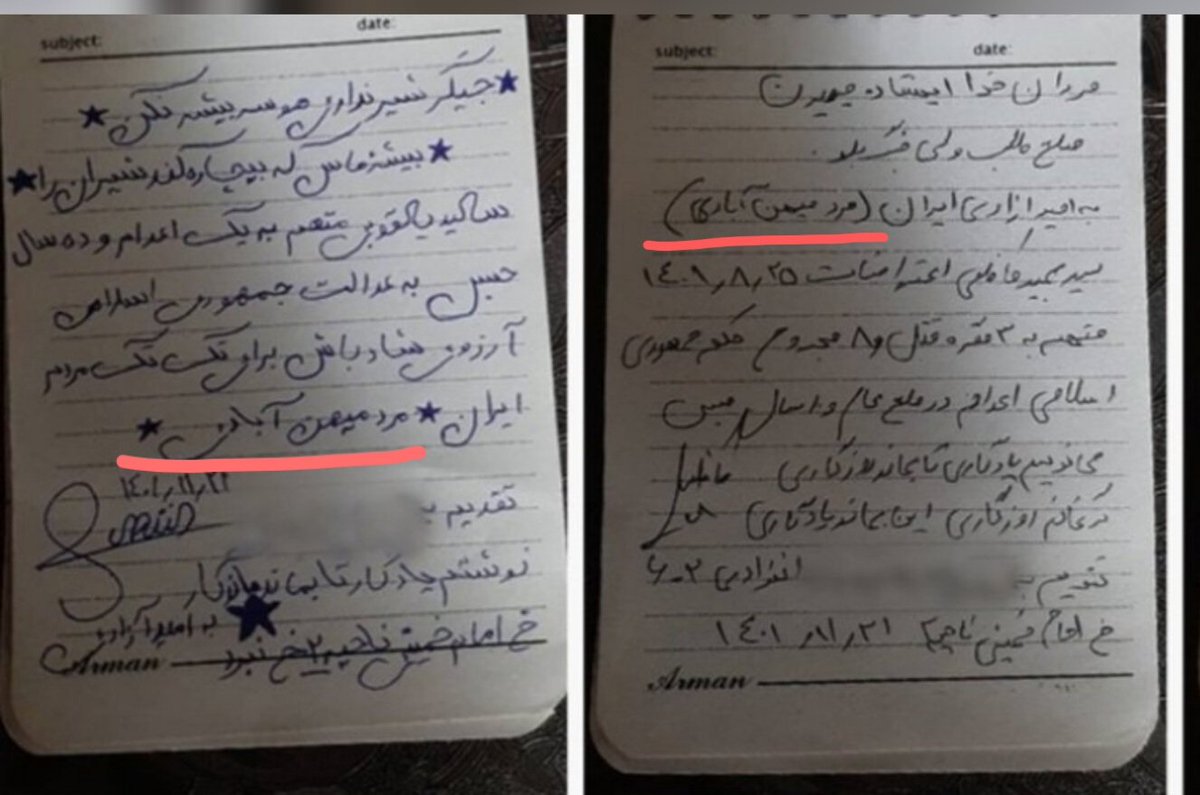 subject:
date:
★جیگر شیر نداری هوسه بیشه نکن★
★بیشه ماس که بیچاره کند شیران را★
صالح یالقوبی متهم به یک اعدام و ده سال
حبس به عدالت جمهوری اسلامی
آرزوی شاد باش برای تک تک مردم
ایران ★مرد میهن آبادی★
۱۴۰۱٫۱۱٫۲۱
تقدیم به
نوشتم یادگار تا بماند ماندگار
★ به امید آزادی
خ امام خمینی ناحیه ۲ خ نبرد
Arman
subject:
date:
مردان خدا ایستاده میمیرن
صلح طلب ولی جنگ بلد.
به امید آزادی ایران (مرد میهن آبادی)
سید مجید کاظمی اعتراضات ۱۴۰۱٫۸٫۲۵
متهم به ۳ فقره قتل و ۸ مجروح حکم جمهوری
اسلامی اعدام در ملع عام و ۱۰ سال حبس
می نویسم یادگاری تا بماند روزگاری
گر نمانم روزگاری این بماند یادگاری
تقدیم به انفرادی ۲-۶
خ امام خمینی ناحیه ۲ ۱۴۰۱٫۱۱٫۲۱
Arman